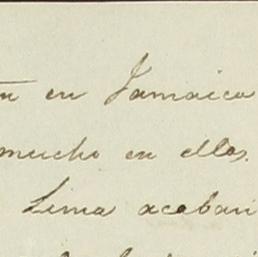 en Jamaica
mucho en ellos.
Lima acaban